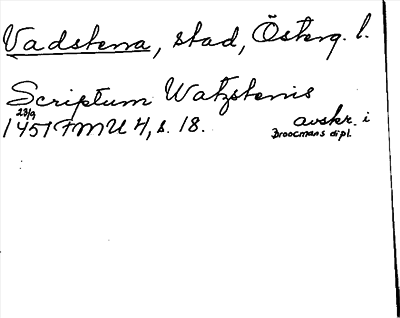 Vadstena, stad, Österg. l.
Scriptum Watzstenis
23/9
1451 FMU 4, s. 18. avskr. i
Broocmans dipl.